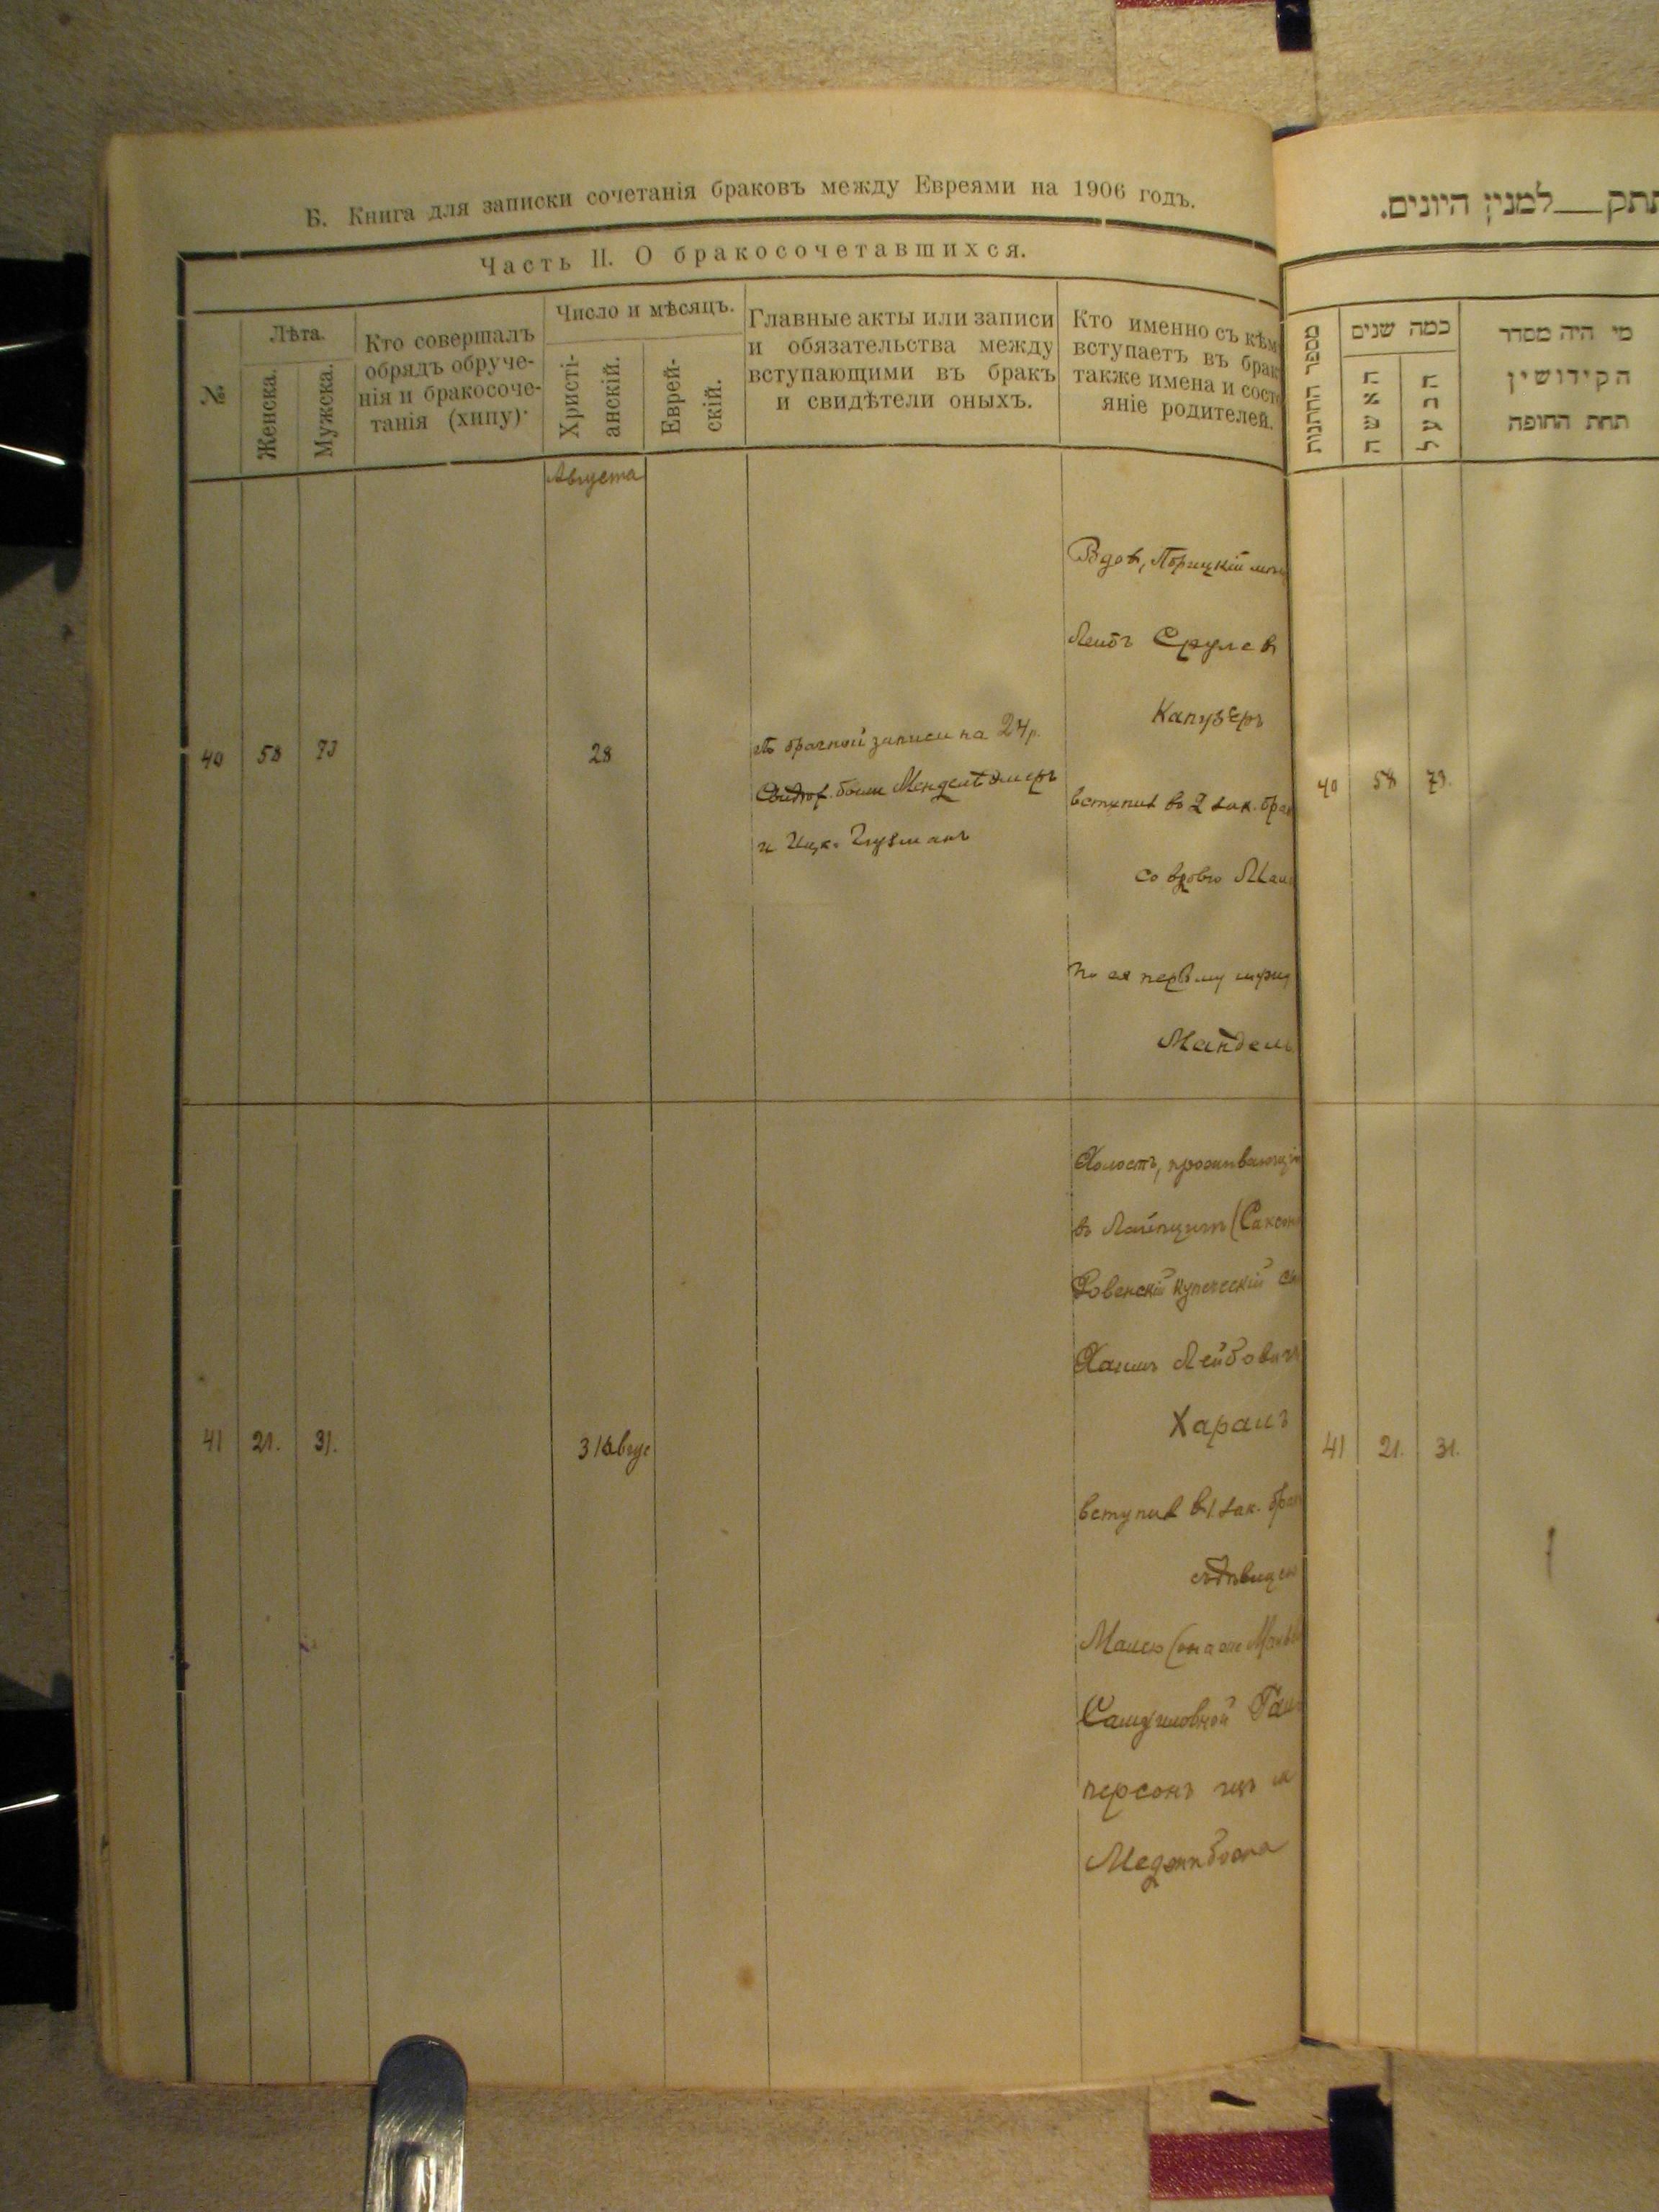 Б. Книга для записки сочетанія браковъ между Евреями на 1906 годъ.
Часть II. О бракосочетавшихся.
№
Лѣта.
Женска.
Мужска.
Кто совершалъ
обрядъ обруче-
нія и бракосоче-
танія (хипу).
Число и мѣсяцъ.
Христі-
анскій.
Еврей-
скій.
Главные акты или записи
и обязательства между
вступающими въ бракъ
и свидѣтели оныхъ.
Кто именно съ кѣм
вступаетъ въ брак
также имена и сост
яніе родителей.
Августа
40 58 73 28
По брачной записи на 24 р.
Свидѣт. были Мендель
и Ицк. Гузманъ
Вдов, Порицкій мѣщ
Лейбъ Срулев
Капузеръ
вступил въ 2 зак. бра
со вдовою
по ея первому мужу
Мандель
41 21. 31. 31 Авгус
Холостъ, проживающій
въ Лайпцигѣ (Саксон
Ровенскій купеческій сы
Хаимъ Лейбовичъ
Харашъ
вступил въ 1 зак. брак
съ дѣвицею
Манею (она же
Самуиловной Галь
персонъ изъ м
Меджибожа
תתק__למנין היונים.
מספר החתנות
כמה שנים
האשה
הבעל
מי היה מסדר
הקידושין
תחת החופה
40 58 73.
41 21. 31.